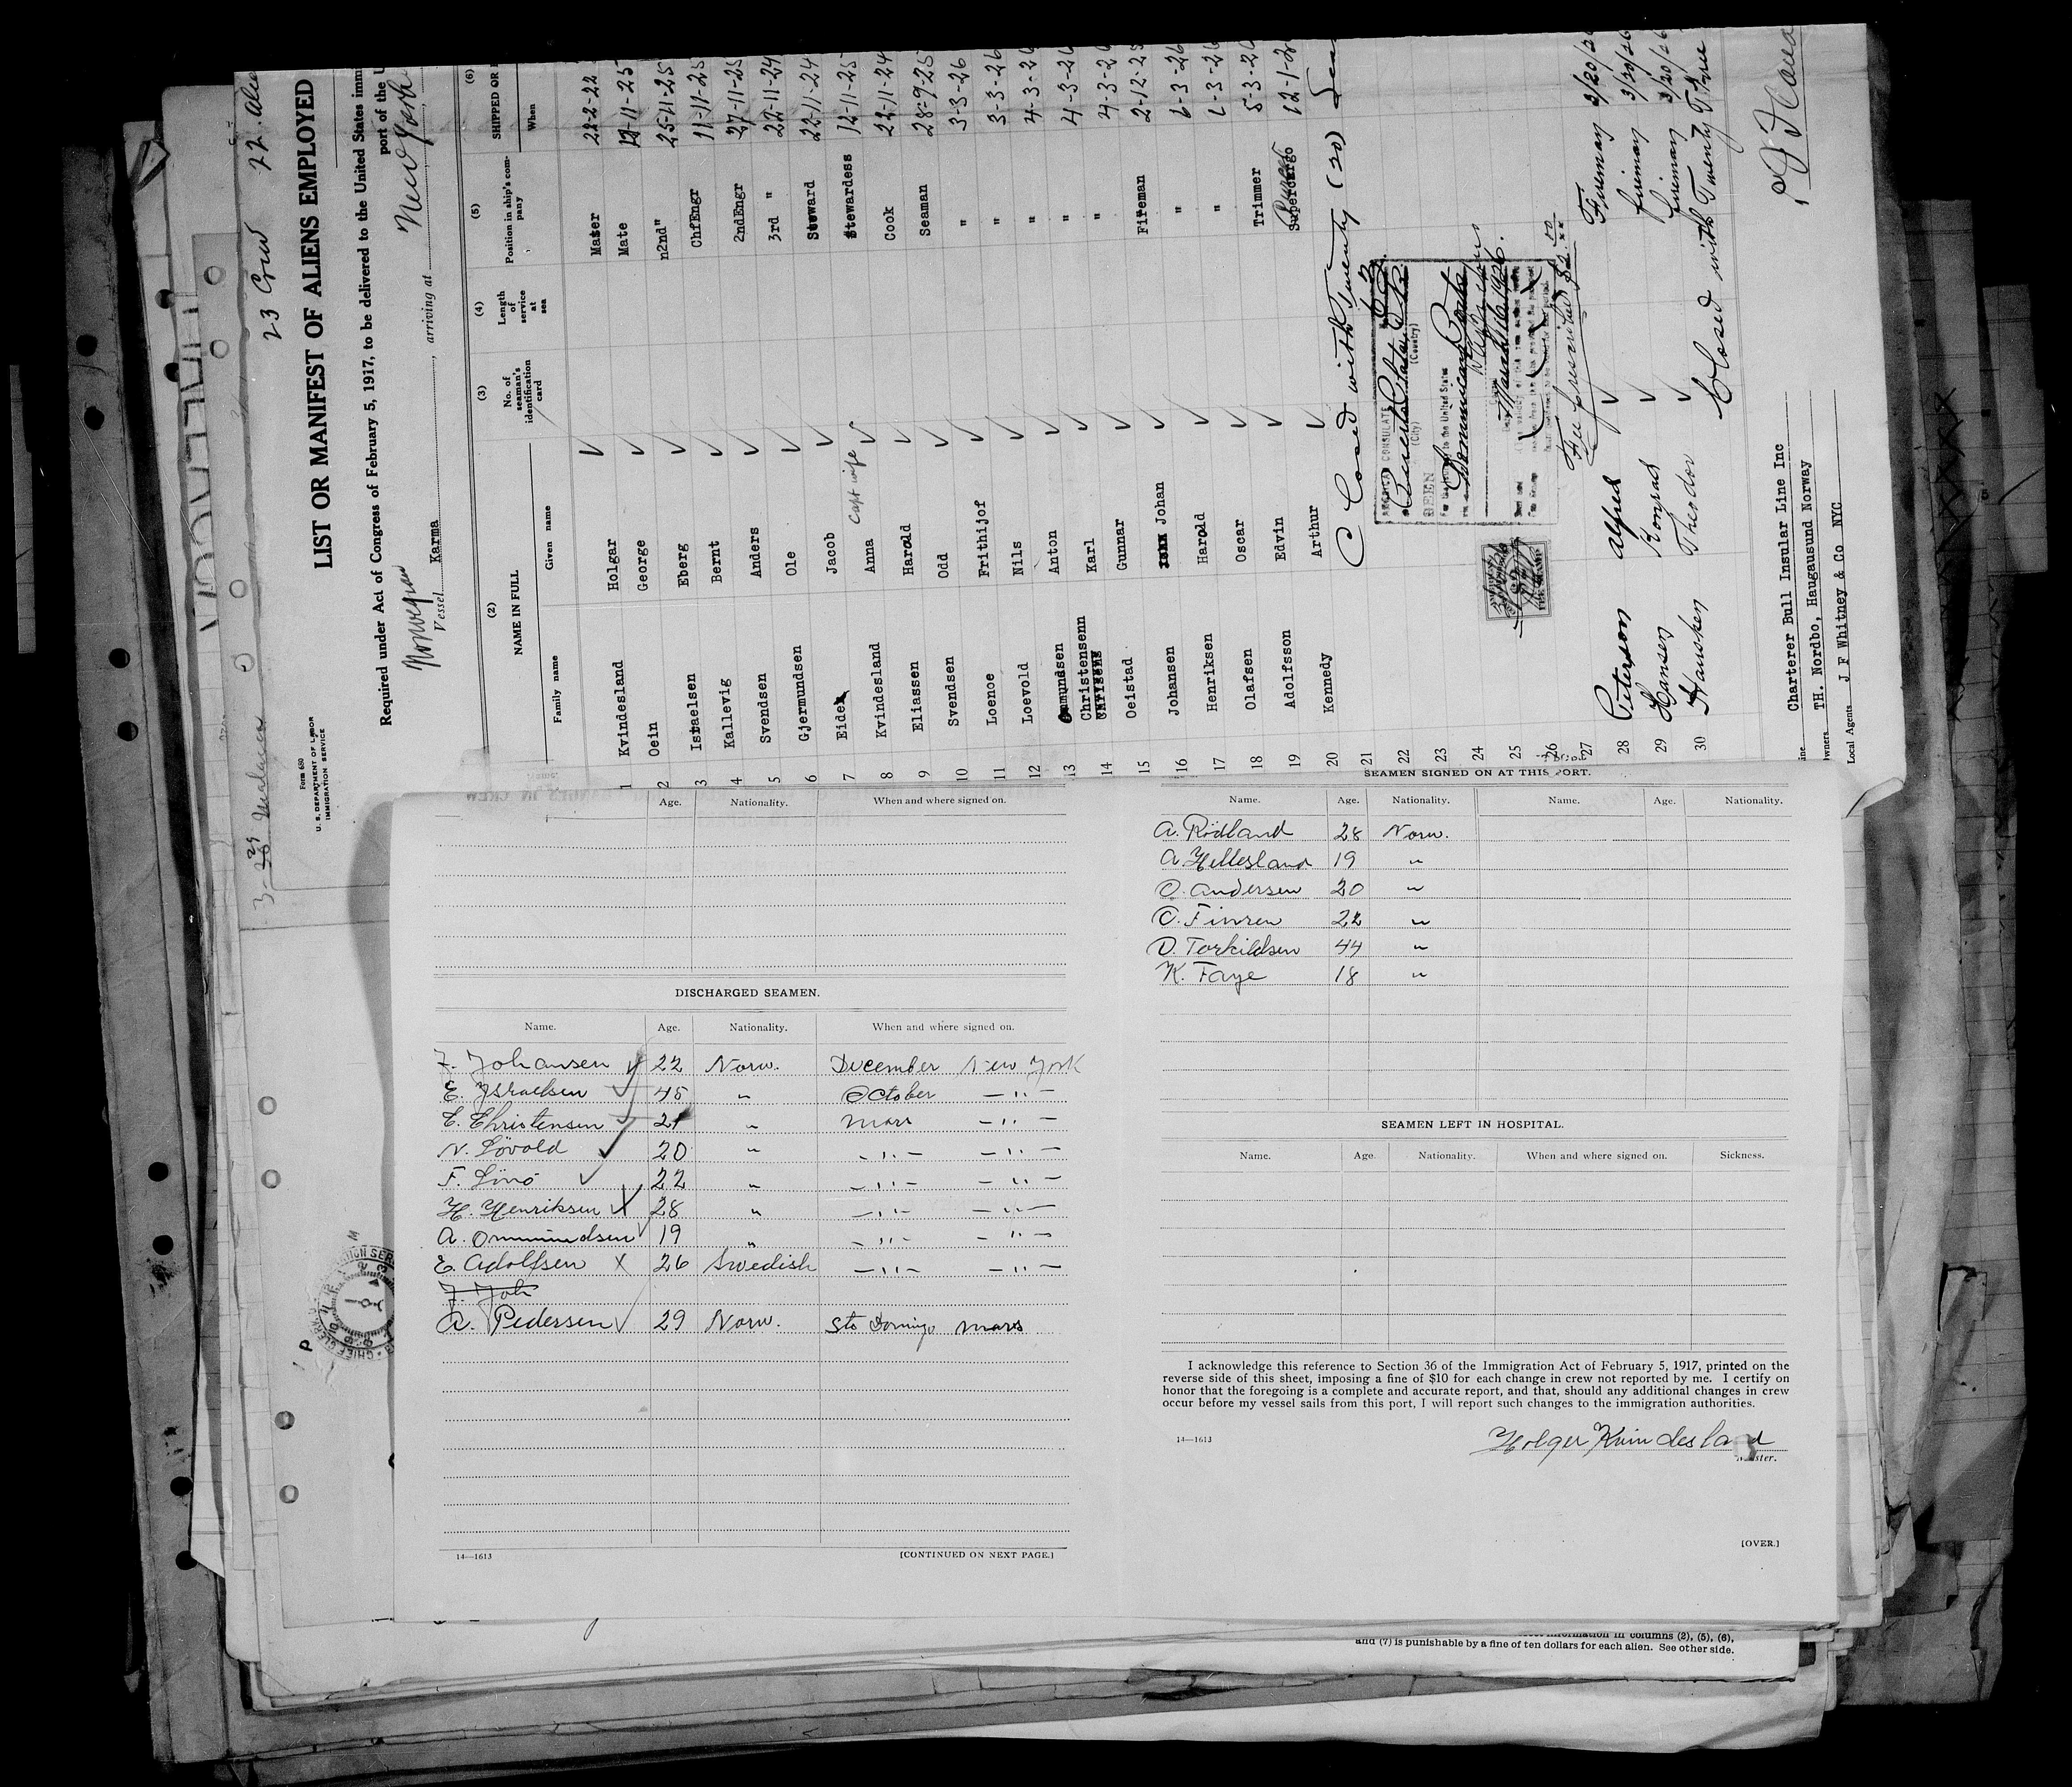 23 Crew
Form 680
U. S. DEPARTMENT OF LABOR
IMMIGRATION SERVICE
LIST OR MANIFEST OF ALIENS EMPLOYED
Required under Act of Congress of February 5, 1917, to be delivered to the United States immi
port of the U
Norwegian
Vessel Karma, arriving at New York
(2) (3) (4) (5) (6)
NAME IN FULL
No. of seaman's identification card
Length of service at sea
Position in ship's company
SHIPPED OR
Family name Given name When
1 Kvindesland Holgar Master 22-2-22
2 Oein George Mate 12-11-25
3 Israelsen Eberg n2nd" 25-11-25
4 Kallevig Bernt ChfEngr 11-11-25
5 Svendsen Anders 2ndEngr 27-11-25
6 Gjermundsen Ole 3rd " 22-11-24
7 Eide Jacob Steward 22-11-24
8 Kvindesland Anna Capt wife Stewardess 12-11-25
9 Eliassen Harodd Cook 22-11-24
10 Svendsen Odd Seaman 28-9-25
11 Loenoe Frithijof " 3-3-26
12 Loevold Nils " 3-3-26
13 Ommundsen Anton " 4-3-26
14 Christensenn Karl " 4-3-26
15 Oeistad Gunnar " 4-3-26
16 Johansen Johan Fireman 2-12-25
17 Henriksen Harodd " 6-3-26
18 Olafsen Oscar " 6-3-26
19 Adolfsson Edvin Trimmer 5-3-26
20 Kennedy Arthur Supercargo Purser 12-1-26
21 Closed with Twenty (20)
22
23
24
25
26
27
AMERICAN CONSULATE
(City) (Country)
SEEN
For the United States
March 16, 1926.
Fee prescribed $2.00
28 Peterson Alfred Fireman 3/20/26
29 Hansen Konrad fireman 3/20/26
30 Hausken Theodor fireman 3/20/26
Closed with Twenty Three
Charterer Bull Insular Line Inc
wners TH. Nordbo, Haugausund Norway
Local Agents J F Whitney & Co NYC
Age. Nationality. When and where signed on.
DISCHARGED SEAMEN.
Name. Age. Nationality. When and where signed on.
J. Johansen 22 Norw. December New York
E. Ysraelsen 45 " October — " —
C. Christensen 21 " Mars — " —
N. Lövold 20 " — " — — " —
F. Lönö 22 " — " — — " —
H. Henriksen 28 " — " — — " —
A. Ommundsen 19 " — " — — " —
E. Adolfsen 26 Swedish — " — — " —
J. Joh
A. Pedersen 29 Norw. Sto Domingo Mars
14—1613
[CONTINUED ON NEXT PAGE.]
SEAMEN SIGNED ON AT THIS PORT.
Name. Age. Nationality. Name. Age. Nationality.
A. Rödland 28 Norw.
A. Hellesland 19 "
O. Andersen 20 "
O. Finsen 22 "
D. Torkildsen 44 "
K. Faye 18 "
SEAMEN LEFT IN HOSPITAL.
Name. Age. Nationality. When and where signed on. Sickness.
I acknowledge this reference to Section 36 of the Immigration Act of February 5, 1917, printed on the
reverse side of this sheet, imposing a fine of $10 for each change in crew not reported by me. I certify on
honor that the foregoing is a complete and accurate report, and that, should any additional changes in crew
occur before my vessel sails from this port, I will report such changes to the immigration authorities.
14—1613
Holger Kvindesland
Master.
[OVER.]
information in columns (2), (5), (6),
and (7) is punishable by a fine of ten dollars for each alien. See other side.